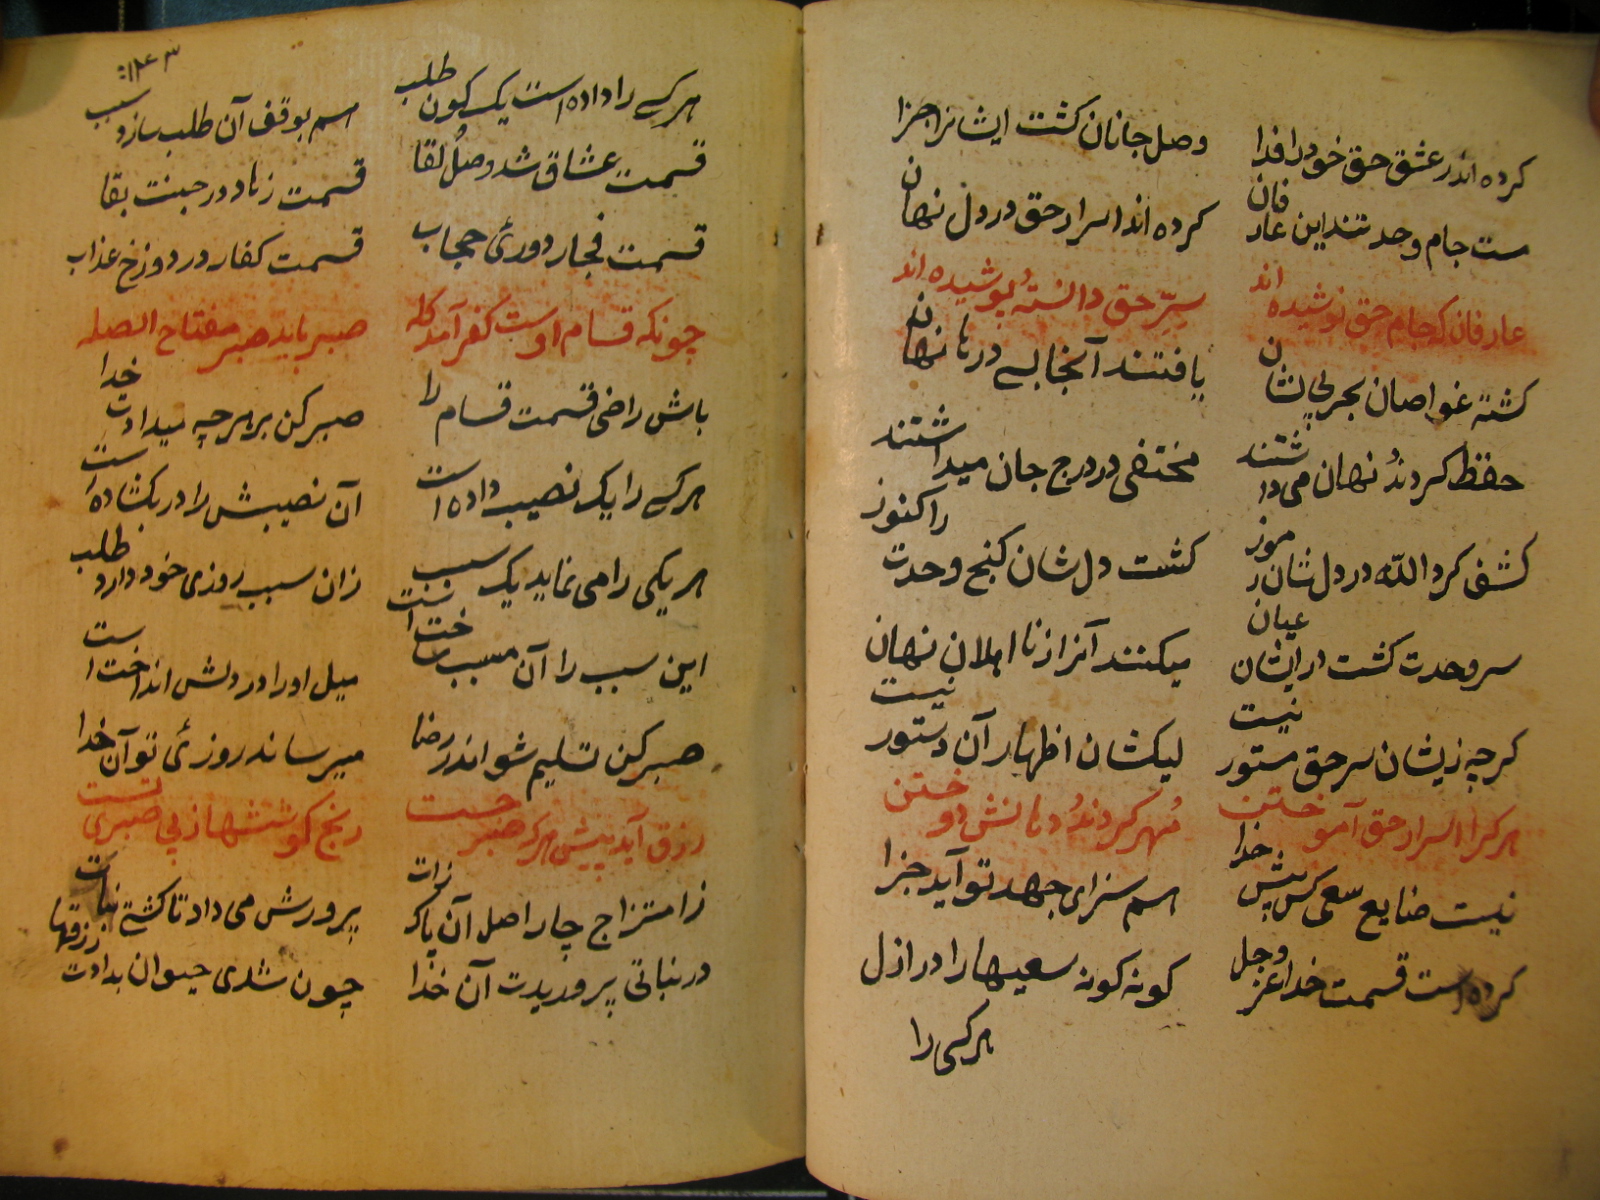 کرده اند در عشق حق خود را فدا وصل جانان کشت ایشانرا جزا
مست جام وحدتند این عارفان کرده اند اسرار حق در دل نهان
عارفان که جام حق نوشیده اند سرّ حق دانسته پوشیده اند
کشته غواصان بحر بی نشان یافتند آنجا بسے درها نهان
حفظ کردند و نهان می داشتند مختفی در درج جان میداشتند
کشف کرد الله در دل شان رموز کشت دل شان کنج وحدت را کنوز
سر وحدت کشت در ایشان عیان میکنند آنرا ز نا اهلان نهان
کرچه زیشان سر حق مستور نیست لیکشان اظهار آن دستور نیست
هر کرا اسرار حق آموختن مُهر کردند و دهانش دوختن
نیست ضایع سعی کس پیش خدا هم سزای جهد تو آید جزا
کرده است قسمت خدا عز و جل کونه کونه سعیها را در ازل
هر کسی را
۱۲۴۳
هر کسے را داده است یک کون طلب هم بوقف آن طلب سازد سبب
قسمت عشاق شد وصل لقا قسمت زهاد در جنت بقا
قسمت فجار دورئ حجاب قسمت کفار در دوزخ عذاب
چونکه قسام اوست کفر آمد کله صبر باید صبر مفتاح الصله
باش راضی قسمت قسام را صبر کن بر هر چه میدادت خدا
هر کسے را یک نصیب داده است آن نصیبش را در بکشاده است
هر یکی را می نماید یک سبب زان سبب روزی خود دارد طلب
این سبب را آن مسبب ساخت است میل او را در دلش انداخت است
صبر کن تسلیم شو اندر رضا میرساند روزئ تو آن خدا
رزق آید پیش هر که صبر جست رنج کوششها ز بی صبری تست
ز امتزاج چار اصل آن پاک ذات پرورش می داد تا کشتے نبات
در نباتی پروریدت آن خدا چون شدی حیوان بدادت رزقها